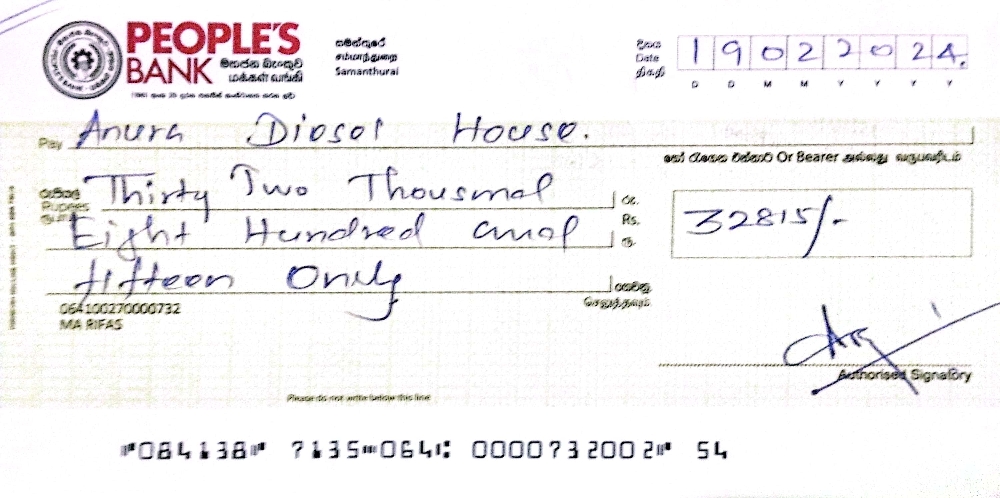 PEOPLE'S
BANK මහජන බැංකුව
மக்கள் வங்கி
සමන්තුරේ
சம்மாந்துறை
Samanthurai
දිනය
Date
திகதி
1 9 0 2 2 0 2 4.
D D M M Y Y Y Y
Pay Anura Diesel House.
හෝ රැගෙන එන්නාට Or Bearer அல்லது வருபவரிடம்
රුපියල්
Rupees
ரூபாய்
Thirty Two Thousand
රු.
Eight Hundred and
Rs.
ரூ.
32815/-
fifteen Only
ගෙවනු
செலுத்தவும்
064100270000732
MA RIFAS
Authorised Signatory
Please do not write below this line
⑈084138⑈ 7135⑉064⑆ 0000732002⑈ 54